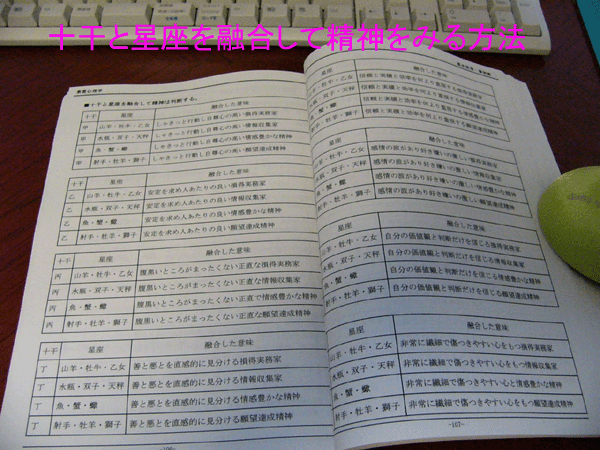 十干と星座を融合して精神をみる方法
■十干と星座を融合して精神は判断する。
十干 星座 融合した意味
甲 山羊・牡牛・乙女 しゃきっと行動し自尊心の高い損得実務家
甲 水瓶・双子・天秤 しゃきっと行動し自尊心の高い情報収集家
甲 魚・蟹・蠍 しゃきっと行動し自尊心の高い情感豊かな精神
甲 射手・牡羊・獅子 しゃきっと行動し自尊心の高い願望達成精神
十干 星座 融合した意味
乙 山羊・牡牛・乙女 安定を求め人あたりの良い損得実務家
乙 水瓶・双子・天秤 安定を求め人あたりの良い情報収集家
乙 魚・蟹・蠍 安定を求め人あたりの良い情感豊かな精神
乙 射手・牡羊・獅子 安定を求め人あたりの良い願望達成精神
十干 星座 融合した意味
丙 山羊・牡牛・乙女 腹黒いところがまったくない正直な損得実務家
丙 水瓶・双子・天秤 腹黒いところがまったくない正直な情報収集家
丙 魚・蟹・蠍 腹黒いところがまったくない正直で情感豊かな精神
丙 射手・牡羊・獅子 腹黒いところがまったくない正直な願望達成精神
十干 星座 融合した意味
丁 山羊・牡牛・乙女 善と悪とを直感的に見分ける損得実務家
丁 水瓶・双子・天秤 善と悪とを直感的に見分ける情報収集家
丁 魚・蟹・蠍 善と悪とを直感的に見分ける情感豊かな精神
丁 射手・牡羊・獅子 善と悪とを直感的に見分ける願望達成精神
-106-
星座 融合した意味
山羊・牡牛・乙女 信頼と実績と効率を何より重視する損得実務家
水瓶・双子・天秤 信頼と実績と効率を何より重視する情報収集家
魚・蟹・蠍 信頼と実績と効率を何より重視する情感豊かな精神
射手・牡羊・獅子 信頼と実績と効率を何より重視する願望達成精神
星座 融合した意味
山羊・牡牛・乙女 感情の波があり好き嫌いの激しい損得実務家
水瓶・双子・天秤 感情の波があり好き嫌いの激しい情報収集家
魚・蟹・蠍 感情の波があり好き嫌いの激しい情感豊かな精神
射手・牡羊・獅子 感情の波があり好き嫌いの激しい願望達成精神
星座 融合した意味
山羊・牡牛・乙女 自分の価値観と判断だけを信じる損得実務家
水瓶・双子・天秤 自分の価値観と判断だけを信じる情報収集家
魚・蟹・蠍 自分の価値観と判断だけを信じる情感豊かな精神
射手・牡羊・獅子 自分の価値観と判断だけを信じる願望達成精神
星座 融合した意味
山羊・牡牛・乙女 非常に繊細で傷つきやすい心をもつ損得実務家
水瓶・双子・天秤 非常に繊細で傷つきやすい心をもつ情報収集家
魚・蟹・蠍 非常に繊細で傷つきやすい心と情感豊かな精神
射手・牡羊・獅子 非常に繊細で傷つきやすい心をもつ願望達成精神
-107-